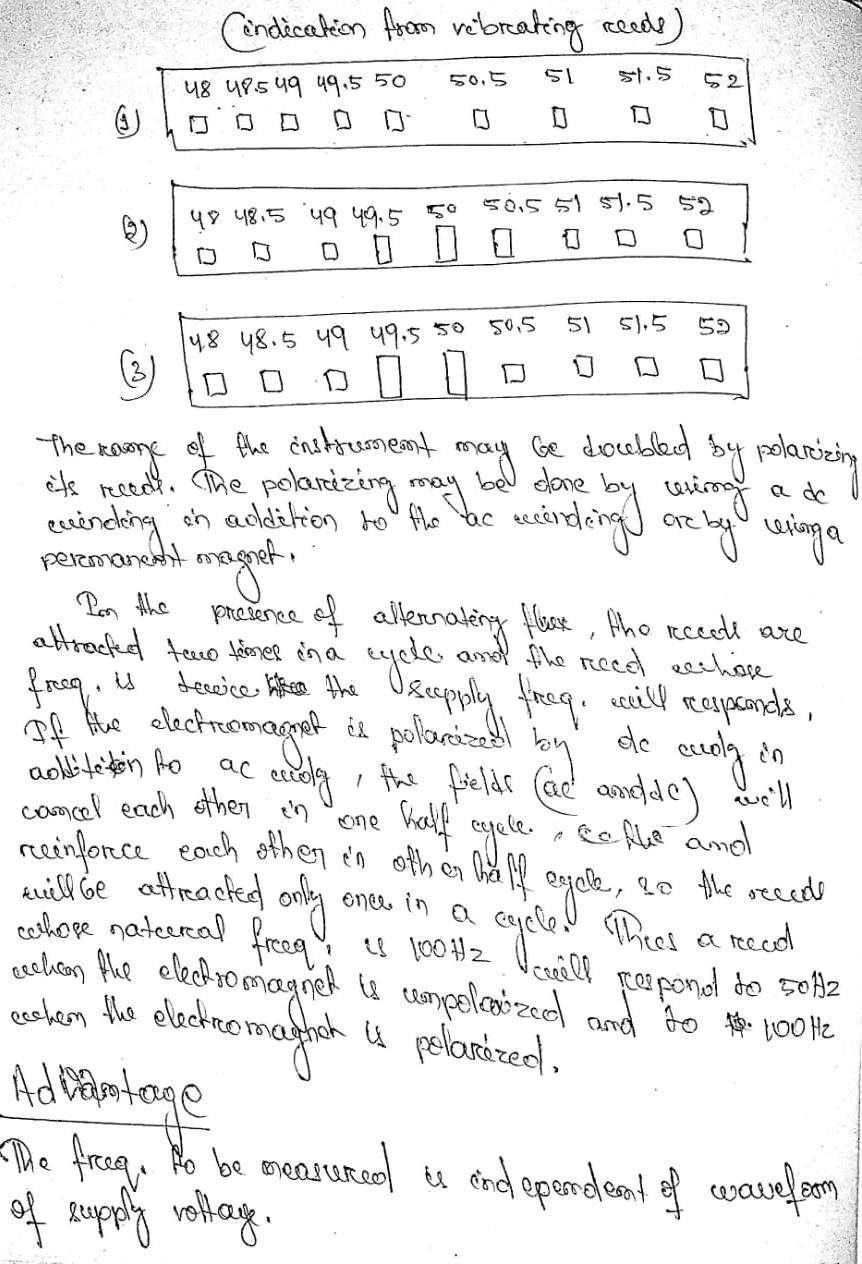 (indication from vibrating reeds)
48 48.5 49 49.5 50 50.5 51 51.5 52
(1)
48 48.5 49 49.5 50 50.5 51 51.5 52
(2)
48 48.5 49 49.5 50 50.5 51 51.5 52
(3)
The range of the instrument may be doubled by polarizing
its reeds. The polarizing may be done by using a dc
winding in addition to the ac winding or by using a
permanent magnet.
In the presence of alternating flux, the reeds are
attracted two times in a cycle and the reed whose
freq. is twice the supply freq. will responds.
If the electromagnet is polarized by dc wdg in
addition to ac wdg, the fields (ac and dc) will
cancel each other in one half cycle, and
reinforce each other in other half cycle, so the reeds
will be attracted only once in a cycle. Thus a reed
whose natural freq. is 100Hz will respond to 50Hz
when the electromagnet is unpolarized and to 100Hz
when the electromagnet is polarized.
Advantage
The freq. to be measured is independent of waveform
of supply voltage.